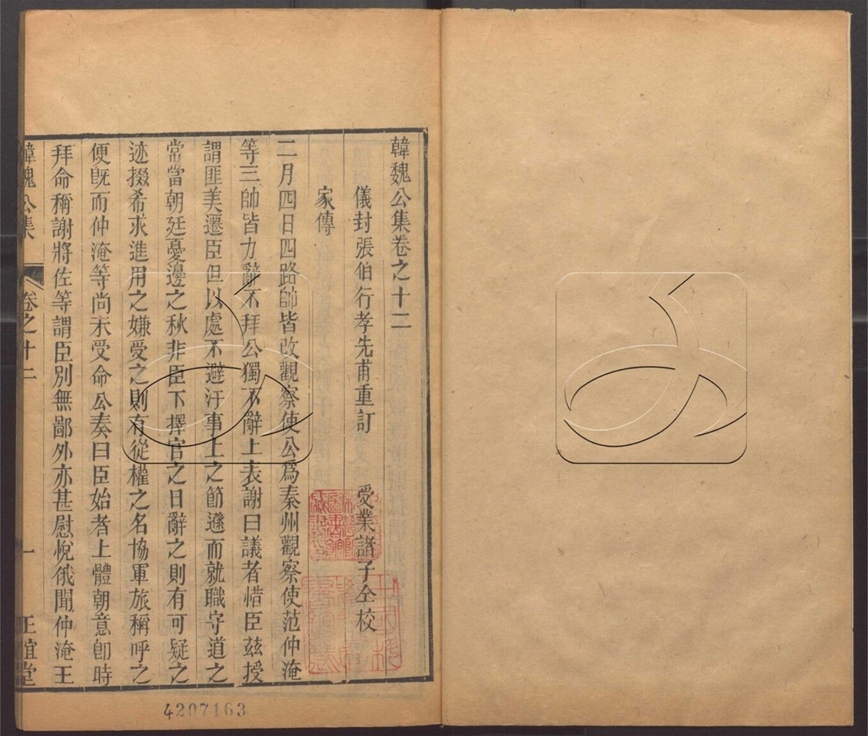 韓魏公集卷之十二
儀封張伯行孝先甫重訂 受業諸子仝校
家傳
二月四日四路帥皆改觀察使公爲秦州觀察使范仲淹
等三帥皆力辭不拜公獨不辭上表謝曰議者惜臣茲授
謂匪美遷臣但以處不避汙事上之節遜而就職守道之
常當朝廷憂邊之秋非臣下擇官之日辭之則有可疑之
迹掇希求進用之嫌受之則有從權之名協軍旅稱呼之
便既而仲淹等尚未受命公奏曰臣始者上體朝意卽時
拜命稱謝將佐等謂臣別無鄙外亦甚慰悅俄聞仲淹王
韓魏公集 卷之十二 一 正誼堂
4207163